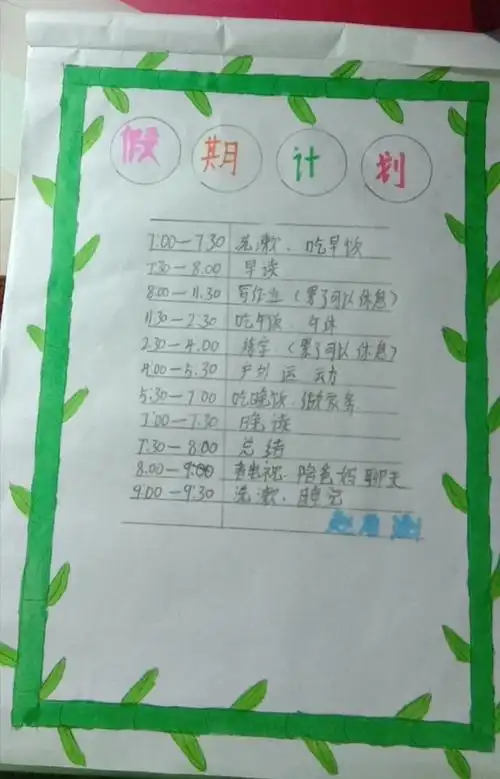 假期计划
7:00—7:30 洗漱、吃早饭
7:30—8:00 早读
8:00—11:30 写作业（累了可以休息）
11:30—2:30 吃午饭、午休
2:30—4:00 练字、（累了可以休息）
4:00—5:30 户外运动
5:30—7:00 吃晚饭、做家务
7:00—7:30 晚读
7:30—8:00 总结
8:00—9:00 看电视、陪爸妈聊天
9:00—9:30 洗漱、睡觉